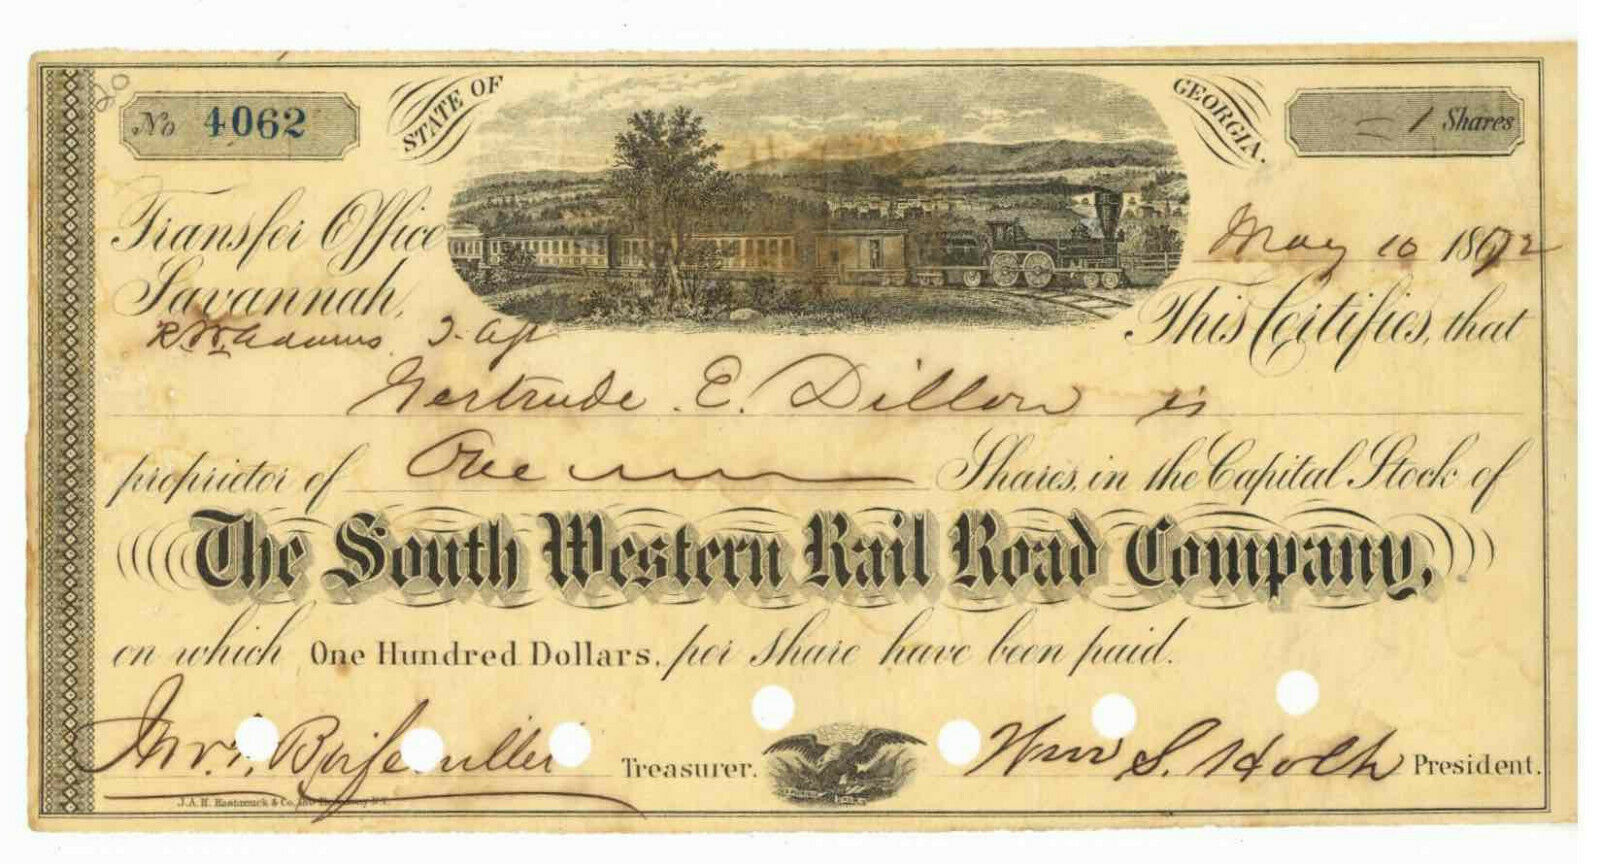 20
No 4062
STATE OF GEORGIA.
= 1 Shares
Transfer Office
Savannah,
May 10 1872
R. W. Adams T. Agt
This Certifies, that
Gertrude E. Dillon is
proprietor of One Shares, in the Capital Stock of
The South Western Rail Road Company,
on which One Hundred Dollars, per share have been paid.
Treasurer.
Wm S. Holt President.
J.A.H. Hasbrouck & Co.